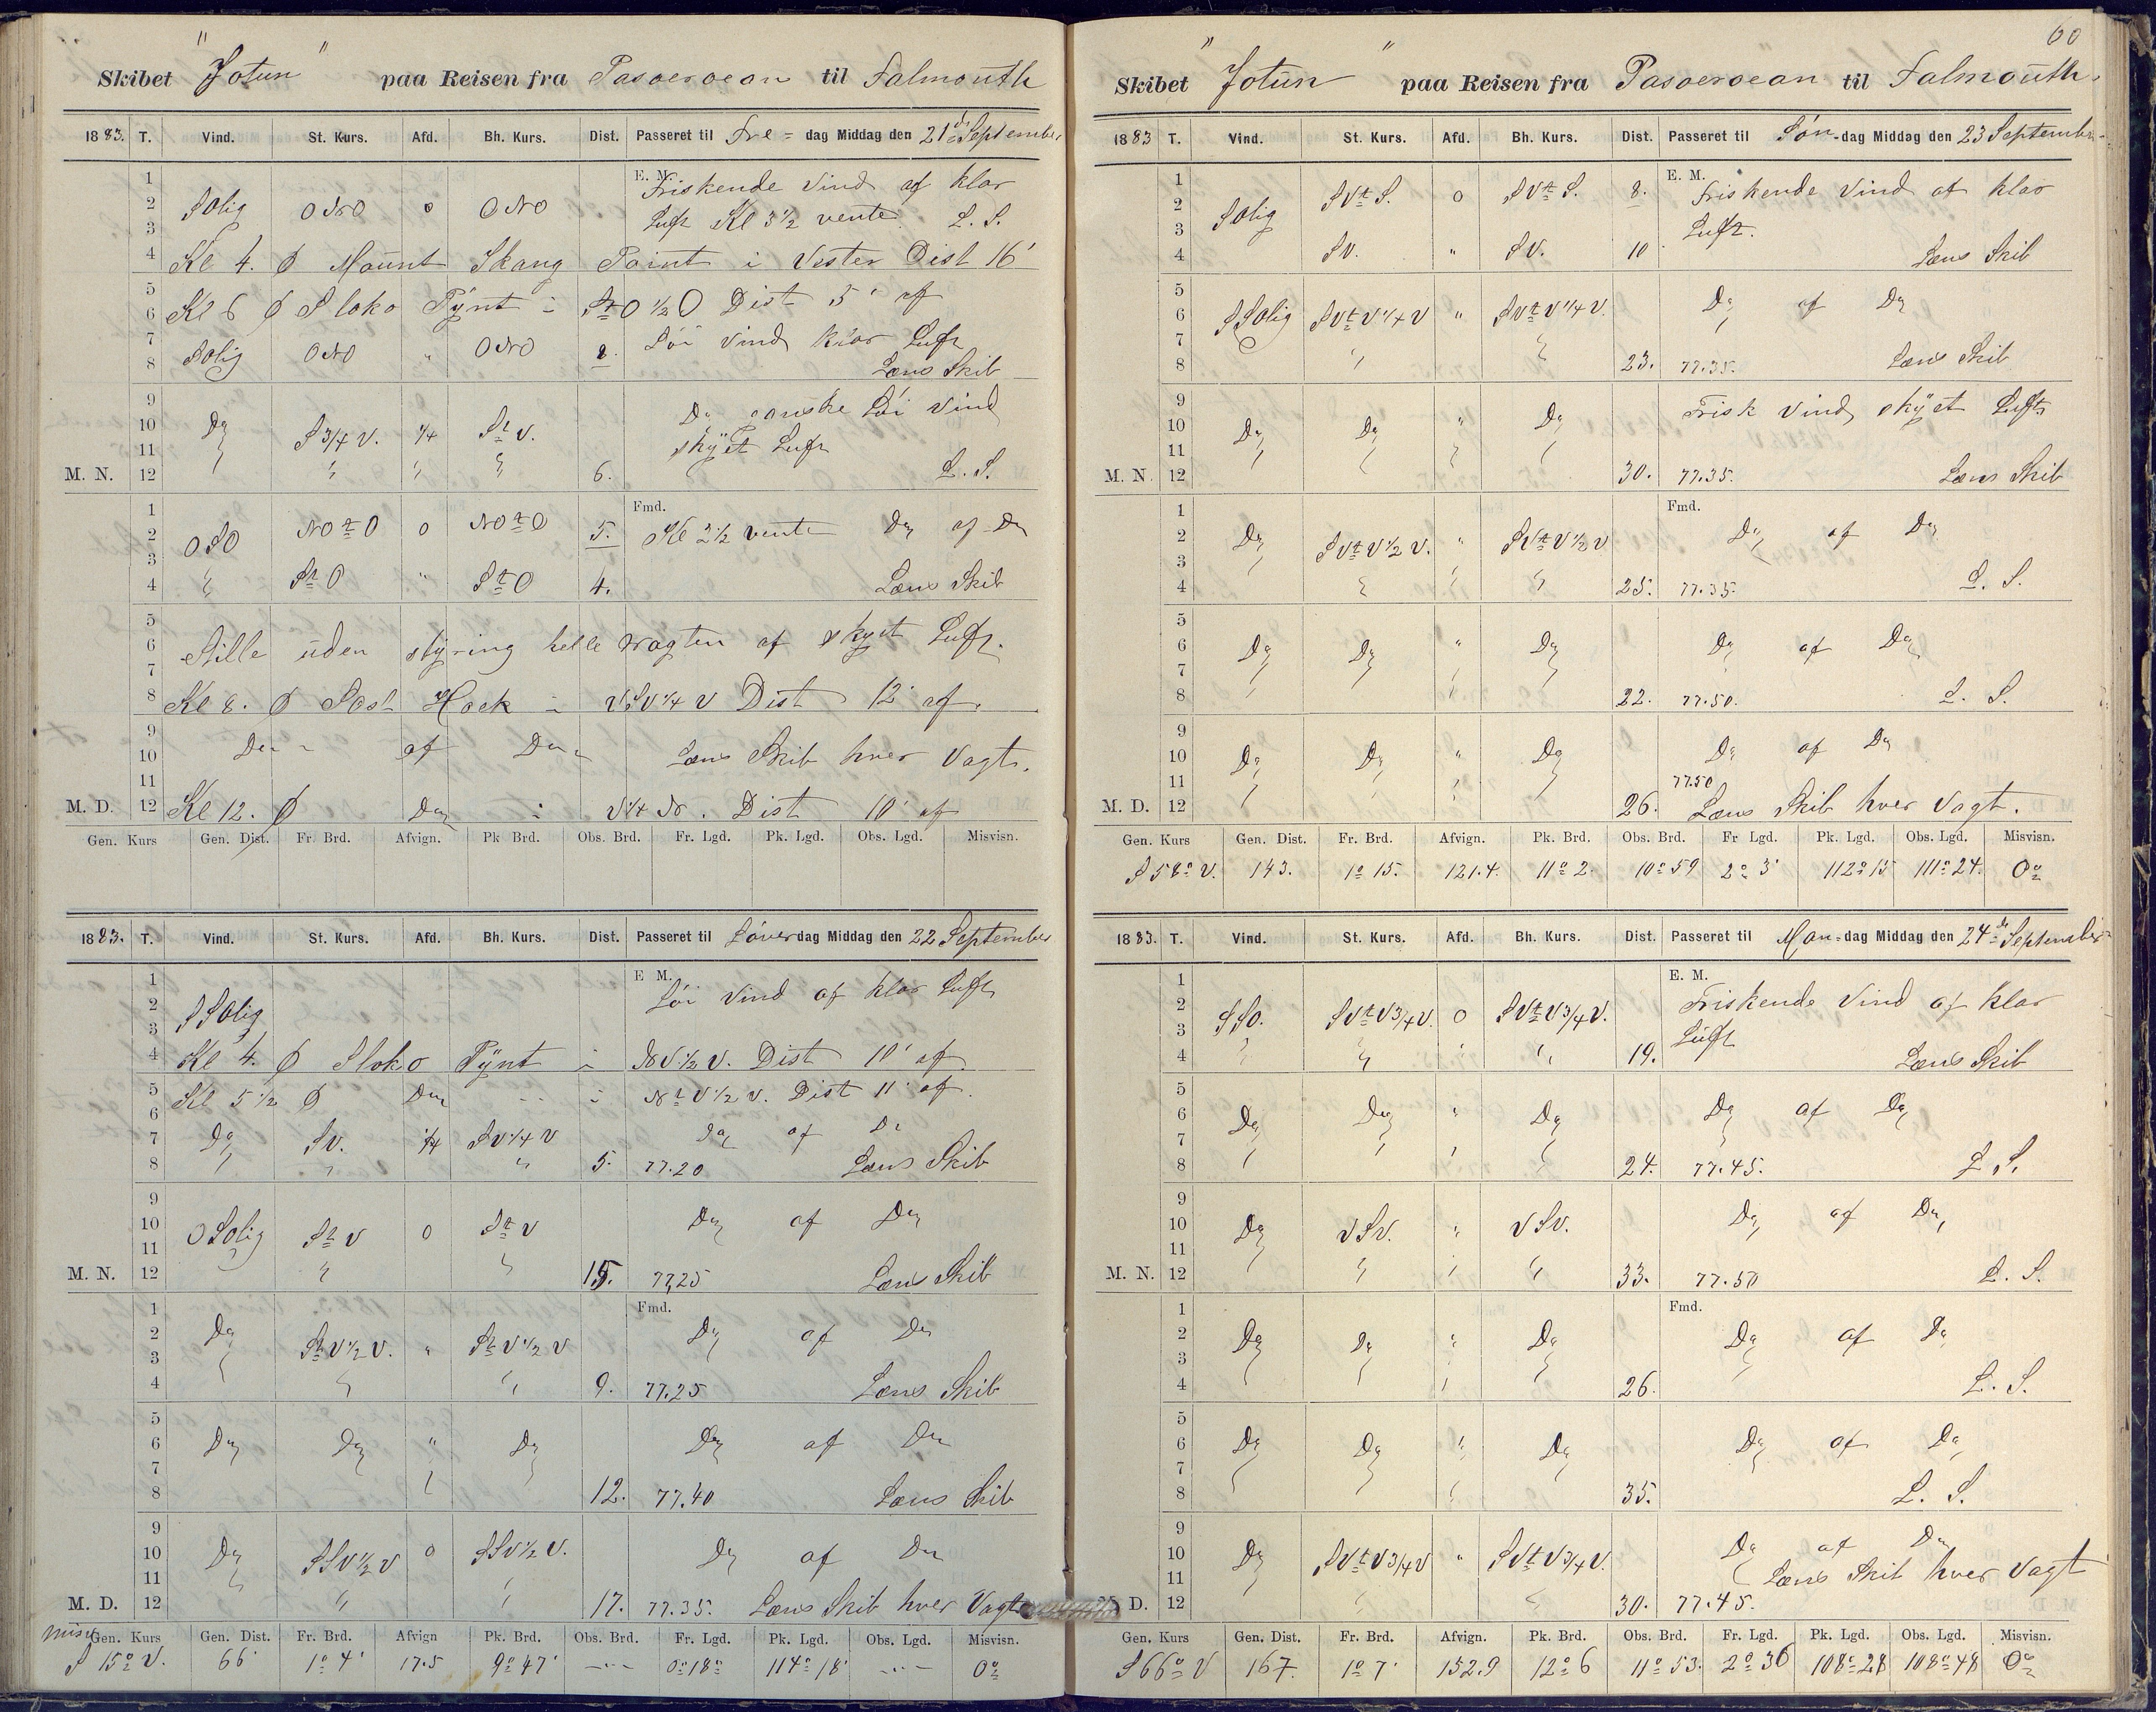 Skibet "Jotun" paa Reisen fra Pasoeroean til Falmouth
1883. T. Vind. St. Kurs. Afd. Bh. Kurs. Dist. Passeret til Fre= dag Middag den 21de September
1 E. M. Friskende Vind af klar
2 SOlig ONO 0 ONO Luft Kl 3½ vente. L. S.
3
4 Kl 4. Mount Skang Point i Vester Dist 16'
5
6 Kl 6 Sloko Pynt i StO½O Dist 5' af
7 SOlig ONO " ONO 2. Løi Vind klar Luft
8 Læns Skib
9 Do ganske Løi Vind
10 Do S¾V. ¼ StV. skyet Luft
11
M. N. 12 " " " 6. L. S.
1 Fmd.
2 OSO NOtO 0 NOtO 5. Kl 2½ vente Do af Do
3
4 " StO " StO 4. Læns Skib
5
6 Stille uden styring helle vagten af skyet Luft.
7
8 Kl 8. Hoek i VSV¼V Dist 12' af.
9
10 Do af Do Læns Skib hver Vagt.
11
M. D. 12 Kl 12. Do i VtN. Dist 10' af
Gen. Kurs Gen. Dist. Fr. Brd. Afvign. Pk Brd. Obs. Brd. Fr. Lgd. Pk. Lgd. Obs. Lgd. Misvisn.
1883. T. Vind. St. Kurs. Afd. Bh. Kurs. Dist. Passeret til Löverdag Middag den 22 September
1 E M. Løi Vind af klar Luft
2 SSOlig
3
4 Kl 4. Sloko Pynt i NV½V. Dist 10' af
5 Kl 5½ Do " i NtV½V. Dist 11' af.
6
7 Do SV. ¼ SV¼V Do af Do
8 " " 5. 77.20 Læns Skib
9
10 OSOlig StV 0 StV Do af Do
11
M. N. 12 " " 15. 77.25 Læns Skib
1 Fmd.
2 Do StV½V. " StV½V Do af Do
3
4 " " 9. 77.25 Læns Skib
5
6 Do Do " Do Do af Do
7
8 12. 77.40 Læns Skib
9
10 Do SSV½V 0 SSV½V. Do af Do
11
M. D. 12 " " 17. 77.35. Læns Skib hver Vagt
misv. Gen. Kurs Gen. Dist. Fr. Brd. Afvign Pk. Brd. Obs. Brd. Fr. Lgd. Pk. Lgd. Obs. Lgd. Misvisn.
S 15° V. 66' 1° 4' 17.5 9° 47' -"- 0° 18' 114° 18' -"- 0°
60
Skibet "Jotun" paa Reisen fra Pasoeroean til Falmouth.
1883 T. Vind. St. Kurs. Afd. Bh. Kurs. Dist. Passeret til Søn-dag Middag den 23 September
1 E. M.
2 SOlig SVtS. 0 SVtS. 8. Friskende Vind af klar
3 Luft.
4 SV. " SV. 10 Læns Skib
5
6 SSOlig SVtV¼V " SVtV¼V. Do af Do
7
8 " " 23. 77.35. Læns Skib
9 Frisk Vind skyet Luft
10 Do Do " Do
11
M. N. 12 30. 77.35. Læns Skib
1 Fmd.
2 Do SVtV½V. " SVtV½V Do af Do
3
4 " " 25. 77.35. L. S.
5
6 Do Do " Do Do af Do
7
8 22. 77.50. L. S.
9
10 Do Do " Do Do af Do
11 77.50
M. D. 12 26. Læns Skib hver Vagt.
Gen. Kurs Gen. Dist. Fr. Brd. Afvign. Pk. Brd. Obs. Brd. Fr Lgd. Pk. Lgd. Obs. Lgd. Misvisn.
S 58° V. 143. 1° 15. 121.4. 11° 2. 10° 59 2° 3' 112° 15 111° 24. 0°
1883. T. Vind. St. Kurs. Afd. Bh. Kurs. Dist. Passeret til Man=dag Middag den 24de September
1 E. M.
2 SSO. SVtV¾V. 0 SVtV¾V. Friskende Vind af klar
3 Luft
4 " " " 19. Læns Skib
5
6 Do Do " Do Do af Do
7
8 24. 77.45. L S.
9
10 Do VSV. " VSV. Do af Do
11
M. N. 12 33. 77.50 L. S.
1 Fmd.
2 Do Do " Do Do af Do
3
4 26. L. S.
5
6 Do Do " Do Do af Do
7
8 35. L. S.
9
10 Do SVtV¾V " SVtV¾V. Do af Do
11 Læns Skib hver Vagt
D. 12 30. 77.45.
Gen. Kurs Gen. Dist. Fr. Brd. Afvign. Pk. Brd. Obs. Brd. Fr. Lgd. Pk. Lgd. Obs. Lgd. Misvisn.
S 66° V 167. 1° 7' 152.9 12° 6 11° 53. 2° 36 108° 28 108° 48 0°